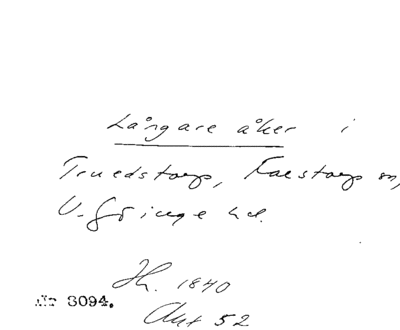 Långare åker i
Truedstorp, Farstorp sn,
V. Göinge hd.
Jh. 1840
Nr 3094.
Akt 52